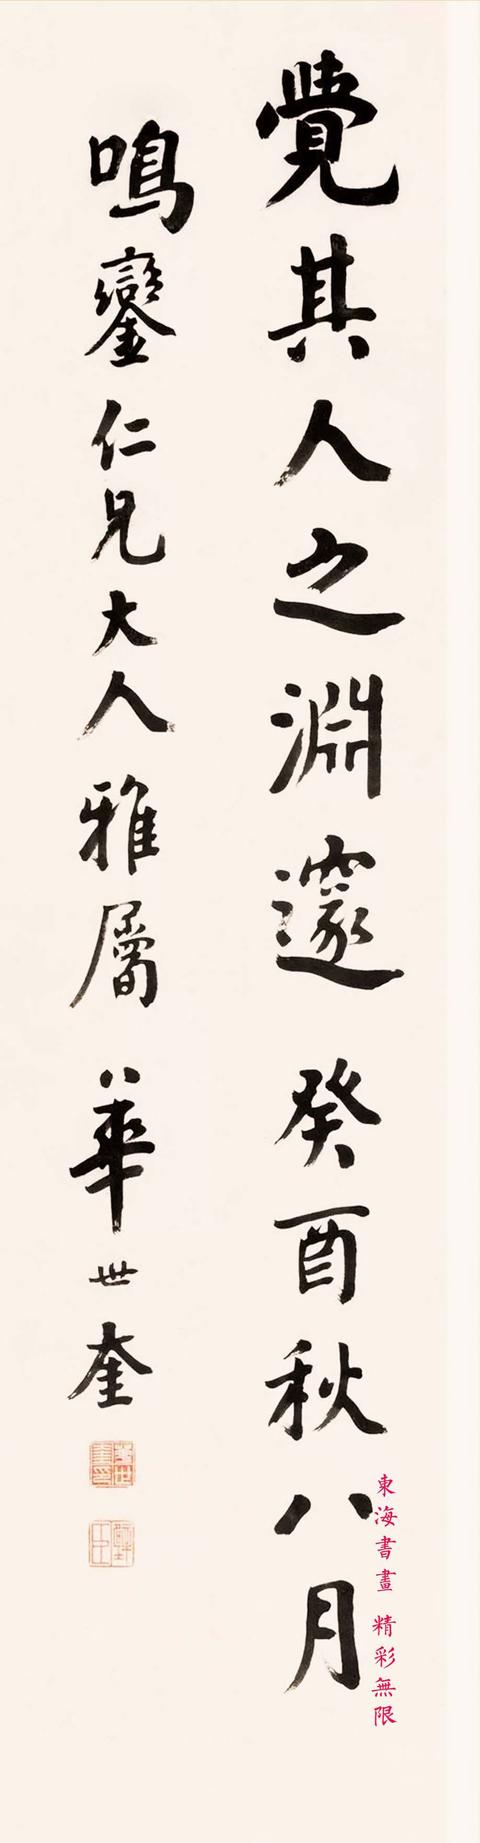 覺其人之淵邃 癸酉秋八月
鳴鑾仁兄大人雅屬 華世奎
東海書畫 精彩無限